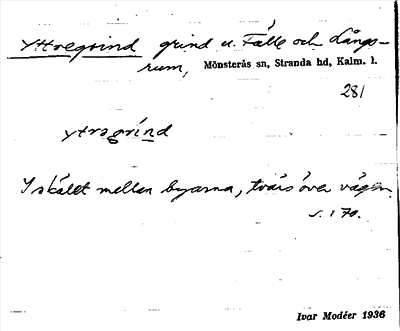 Yttregrind grind u. Fälle och Långs-
rum, Mönsterås sn, Stranda hd, Kalm. l.
281
ytragrind
I skälet mellan byarna, tvärs över vägen.
s. 170.
Ivar Modéer 1936